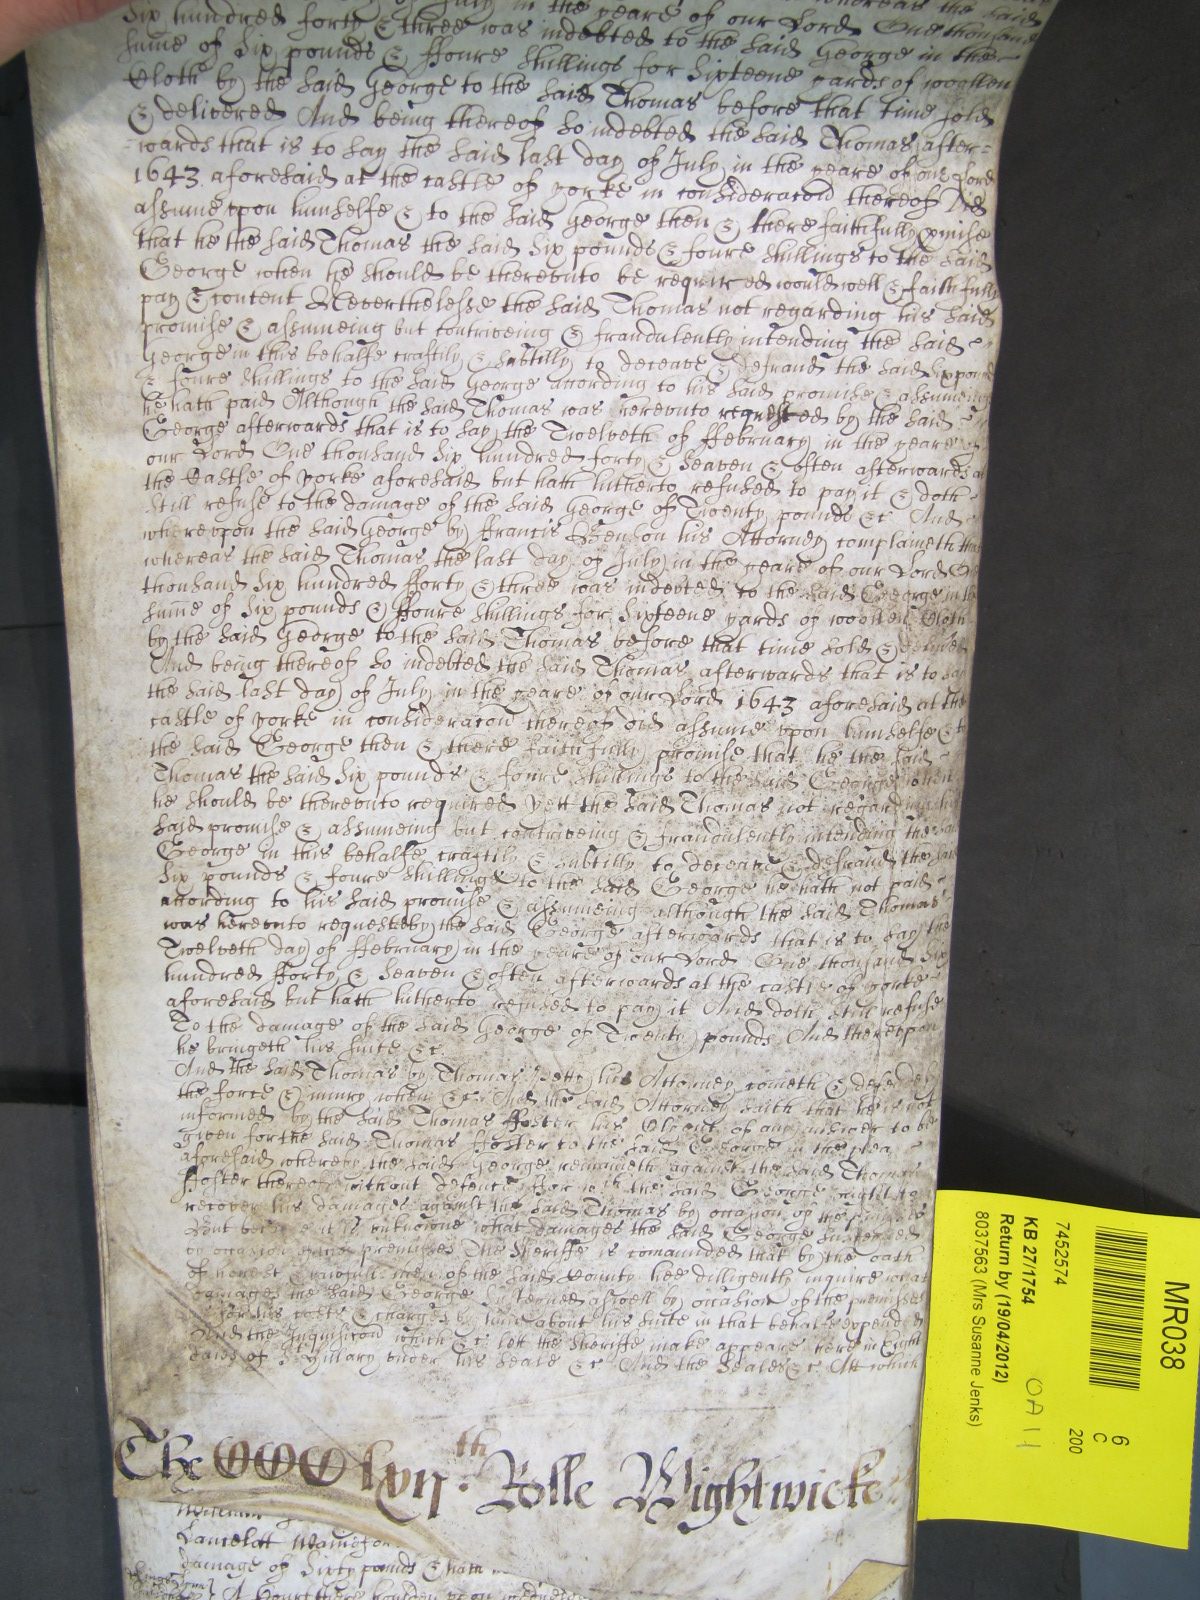 of July in the yeare of our Lord whereas the said
Six hundred forty & three was indebted to the said George in the
sume of Six pounds & ffoure shillings for Sixteene yards of woollen
Cloth by the said George to the said Thomas before that time sold
& delivered And being thereof so indebted the said Thomas after=
=wards that is to say the said last day of July in the yeare of our Lord
1643 aforesaid at the castle of yorke in consideracon thereof did
assume vpon himselfe & to the said George then & there faithfully pmise
that he the said Thomas the said Six pounds & foure shillings to the said
George when he should be therevnto be required would well & faithfully
pay & content Neverthelesse the said Thomas not regarding his said
promise & assumeing but contriveing & fraudulently intending the said
George in this behalfe craftily & subtilly to deceave & defraud the said six pounds
& foure shillings to the said George according to his said promise & assumeing
he hath paid Although the said Thomas was herevnto requested by the said
George afterwards that is to say the Twelveth of ffebruary in the yeare of
our Lord One thousand Six hundred forty & seaven & often afterwards at
the Castle of yorke aforesaid but hath hitherto refused to pay it & doth
still refuse to the damage of the said George of Twenty pounds &c And
wherevpon the said George by ffrancis Benson his Attorney complaineth that
whereas the said Thomas the last day of July in the yeare of our Lord One
thousand Six hundred fforty & three was indebted to the said George in the
sume of Six pounds & ffoure shillings for Sixteene yards of woollen Cloth
by the said George to the said Thomas before that time sold & delivered
And being thereof so indebted the said Thomas afterwards that is to say
the said last day of July in the yeare of our Lord 1643 aforesaid at the
castle of yorke in consideracon thereof did assume vpon himselfe & to
the said George then & there faithfully promise that he the said
Thomas the said Six pounds & foure shillings to the said George when
he should be therevnto required yett the said Thomas not regarding his
said promise & assumeing but contriveing & fraudulently intending the said
George in this behalfe craftily & subtilly to deceave & defraud the said
Six pounds & foure shillings to the said George he hath not paid
according to his said promise & assumeing although the said Thomas
was herevnto requesteby the said George afterwards that is to say the
Twelveth day of ffebruary in the yeare of our Lord One thousand Six
hundred fforty & seaven & often afterwards at the castle of yorke
aforesaid but hath hitherto refused to pay it And doth still refuse
To the damage of the said George of Twenty pounds And therevpon
he bringeth his suite &c
And the said Thomas by Thomas Petty his Attorney cometh & defendeth
the force & iniury when &c And the said Attorney saith that he is not
informed by the said Thomas ffoster his Clyent of any answer to be
given for the said Thomas ffoster to the said George in the plea
aforesaid whereby the said George remaineth against the said Thomas
ffoster thereof without defence ffor wch the said George ought to
recover his damages against the said Thomas by occasion of the premisses
But because it is vnknowne what damages the said George sustened
by occasion of the premisses The Sheriffe is comaunded that by the oath
of honest & lawfull men of the said County hee dilligently inquire what
damages the said George susteined aswell by occasion of the premisses
as for his costs & charges by him about his suite in that behalfe expended
And the Inquisicon which &c lett the Sheriffe make appeare here in Eight
daies of St Hillary vnder his seale &c And the Seales &c Att which
The CCC lxvijth Rolle Wightwicke
William
Lancelott
damage of Sixty pounds & hath
MR038
6
C
200
7452574
KB 27/1754
Return by (19/04/2012)
8037563 (Mrs Susanne Jenks)